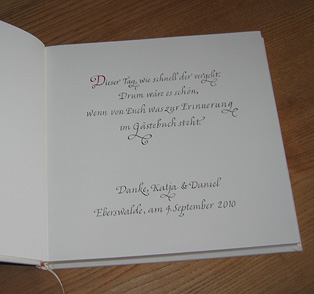 Dieser Tag, wie schnell der vergeht.
Drum wäre es schön,
wenn von Euch was zur Erinnerung
im Gästebuch steht.
Danke, Katja & Daniel
Eberswalde, am 4. September 2010